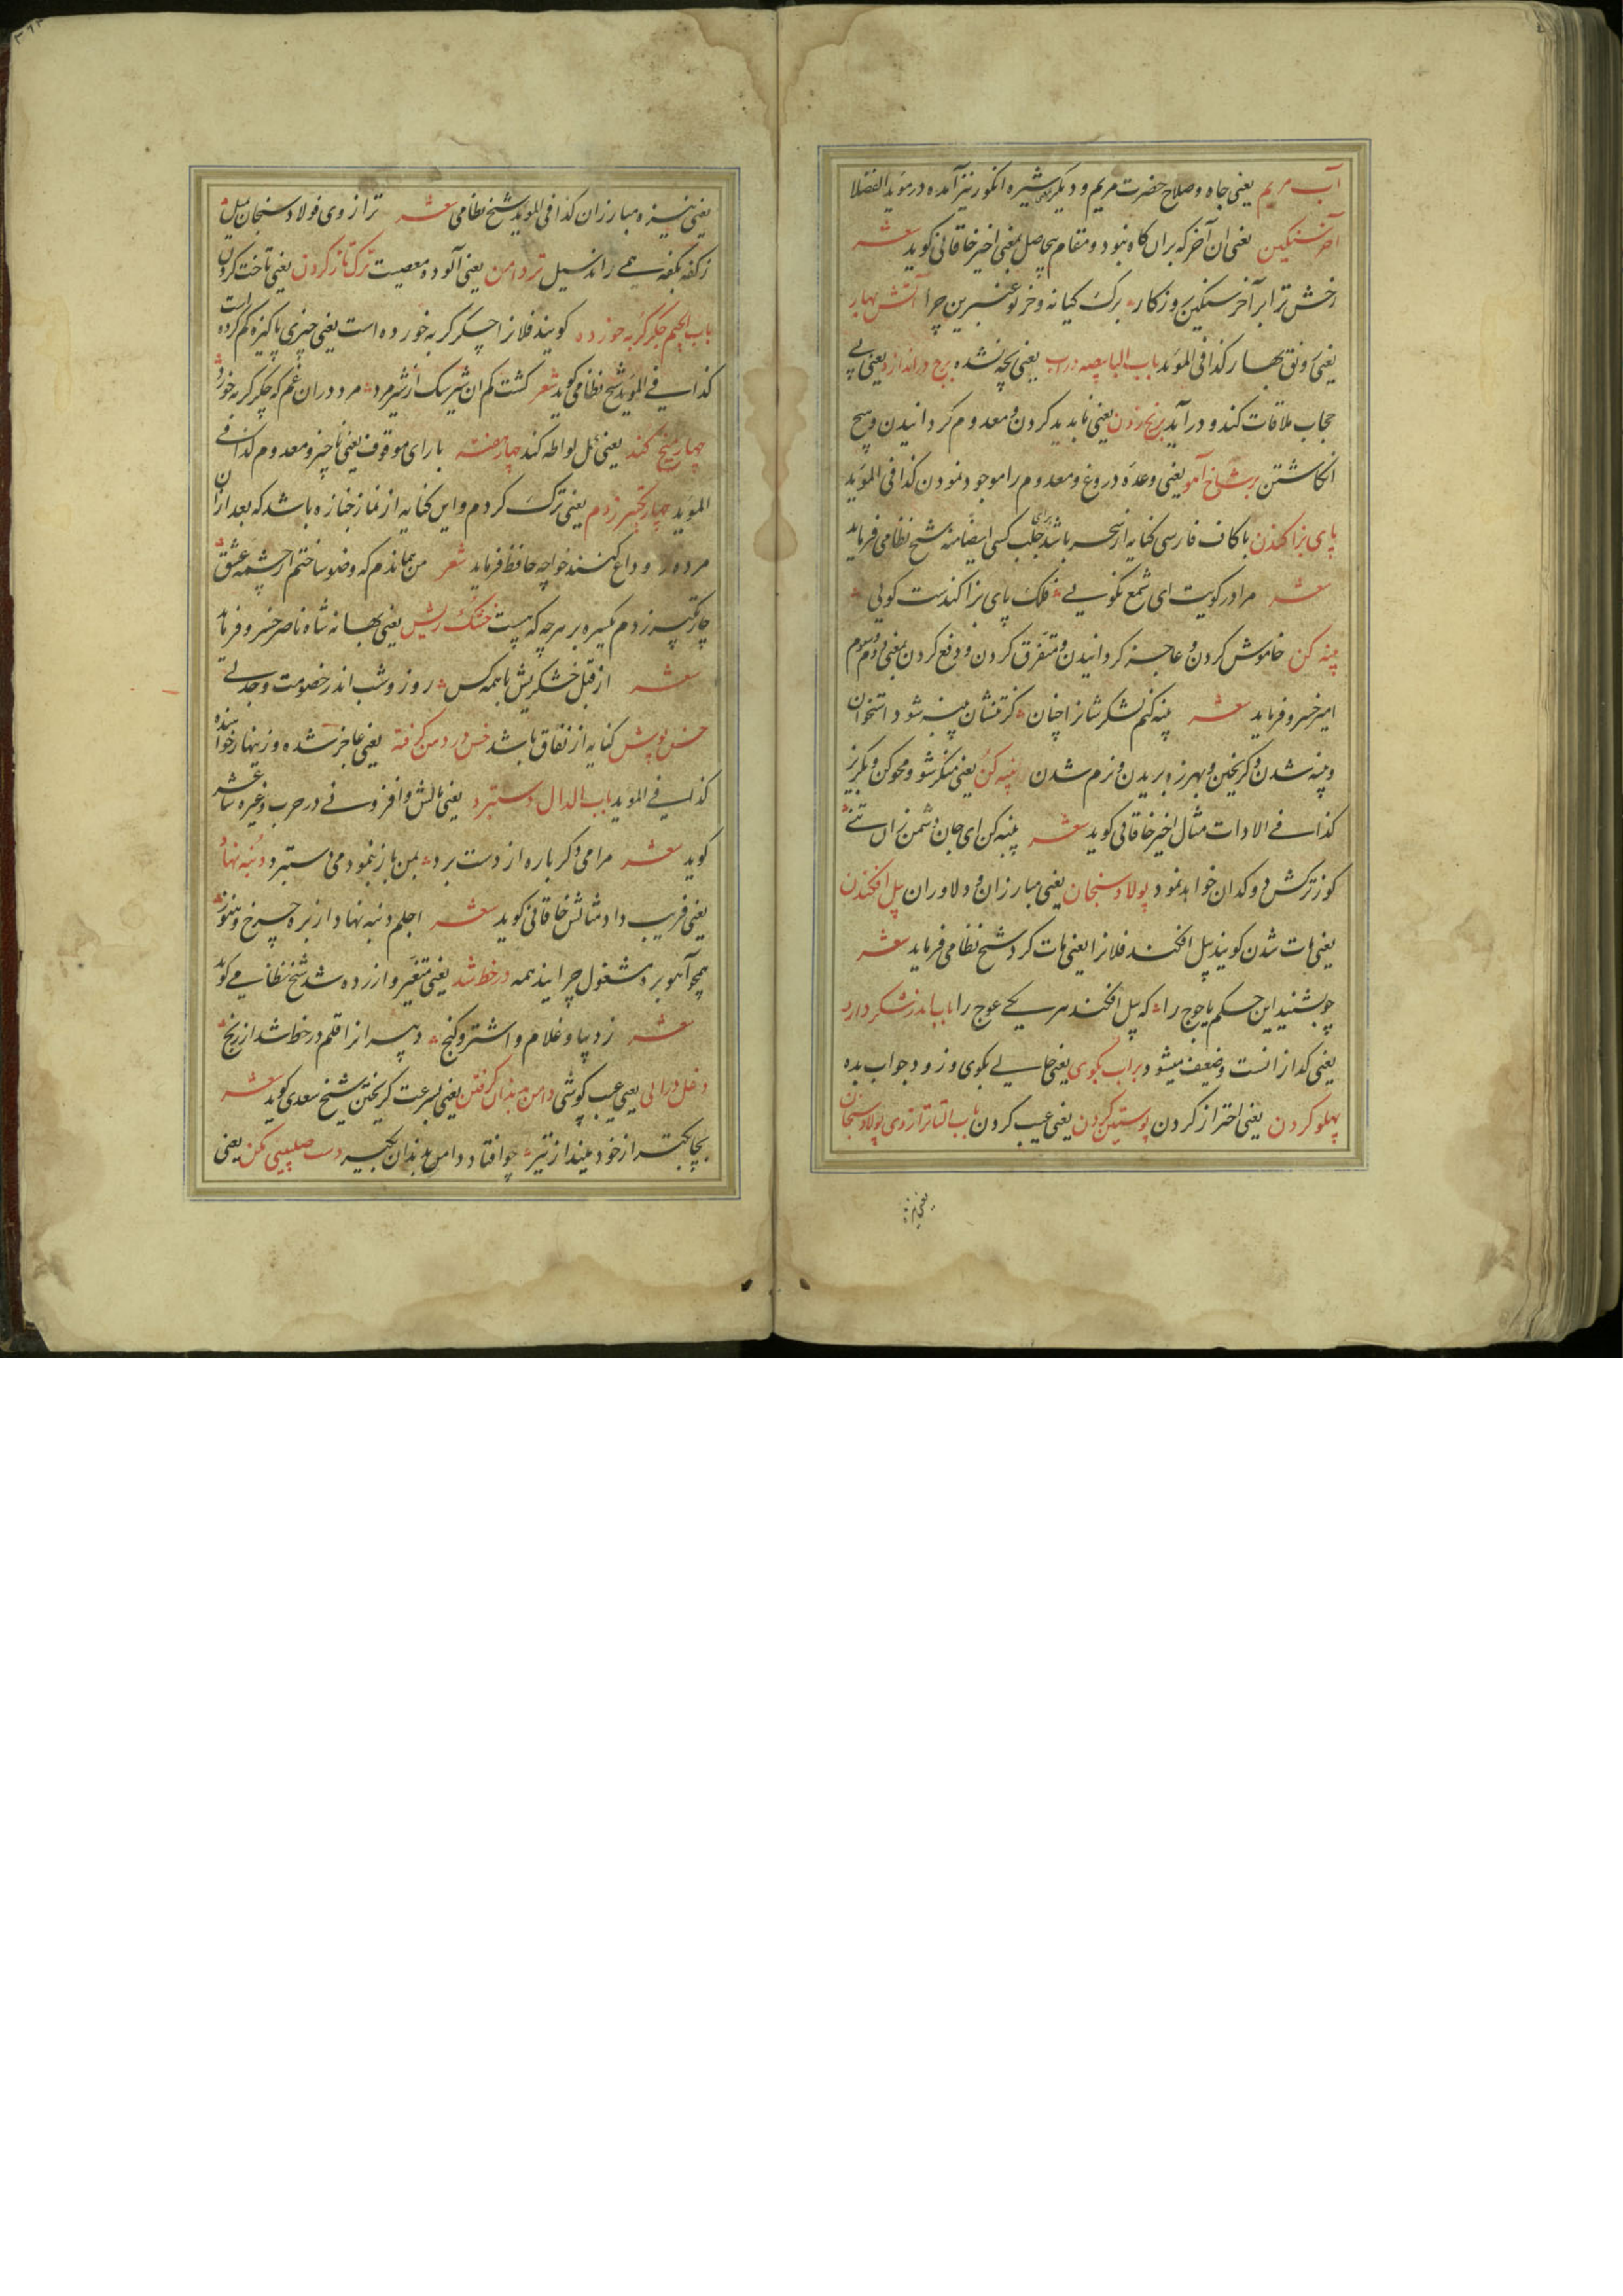 آب مریم یعنی جاه و صلاح حضرت مریم و دیگر شیره انکور نیز آمده در موید الفضلا
آخر سنکین یعنی ان آخر که بران کاه نبود و مقام بیحاصل بمعنی اخیر خاقانی کوید شعر
رخش ترا بر آخر سنکین روزکار برک کیا نه و خر تو عنبرین چرا آتش بهار
یعنی رونق بهار کذا فی الموید باب البا بیضه در آب یعنی بچه نشده برج در اندازد یعنی بی
حجاب ملاقات کند و در آید بر یخ زدن یعنی نابدید کردن و معدوم کردانیدن و هیچ
انکاشتن بر شاخ آهو یعنی وعده دروغ و معدوم را موجود نمودن کذا فی الموید
پای بز افکندن با کاف فارسی کنایه از سحر باشد برای جلب کسی ایضا منه شیخ نظامی فرماید
شعر مرا در کویت ای شمع نکویی فلک پای بز افکندست کویی
پنبه کن خاموش کردن و عاجز کردانیدن و متفرق کردن و دفع کردن بمعنی دوم و سوم
امیر خسرو فرماید شعر پنبه کنم لشکر شانرا چنان کز تنشان پنبه شود استخوان
و پنبه شدن و کریختن و بهرزه بریدن و نرم شدن پنبه کن یعنی منکر شو و محو کن و بکریز
کذا فی الادات مثال اخیر خاقانی کوید شعر پنبه کن ای جان دشمن زان تنی
کوز ترکش دوکدان خواهد نمود پولاد سنجان یعنی مبارزان و دلاوران پل افکندن
یعنی مات شدن کویند پیل افکند فلانرا یعنی مات کرد شیخ نظامی فرماید شعر
چو بشنید این حکم یاجوج را که پیل افکند هر یکی عوج را باب اندر شکر دارد
یعنی کدازانست و ضعیف میشود بر آب بکوی یعنی حالی بکوی و زود جواب بده
پهلو کردن یعنی احتراز کردن پوستین کردن یعنی عیب کردن باب التا ترازوی پولاد سنجان
یعنی نیزه مبارزان کذا فی الموید شیخ نظامی شعر ترازوی فولاد سنجان بمیل
ز کفه بکفه همی راند سیل تر دامن یعنی آلوده معصیت ترک تاز کردن یعنی تاخت کردن
باب الجیم جکر کربه خورده کویند فلانرا جکر کربه خورده است یعنی چیزی پاکیزه کم کرده است
کذا فی الموید شیخ نظامی کوید شعر کشت کم ان شیر سک از شیر مرد مرد دران غم که جکر کربه خورد
چهار میخ کند یعنی عمل لواطه کند چهار هفته با رای موقوف یعنی ناچیز و معدوم کذا فی
الموید چهار تکبیر زدم یعنی ترک کردم و این کنایه از نماز جنازه باشد که بعد از ان
مرده را وداع کنند خواجه حافظ فرماید شعر من هماندم که وضو ساختم از چشمه عشق
چار تکبیر زدم یکسره بر هرچه که هست خشک ریش یعنی بهانه شاه ناصر خسرو فرماید
شعر از قبل خشکریش با همه کس روز و شب اندر خصومت و جدلی
خس پوش کنایه از نفاق باشد خس در دهن کرفته یعنی عاجز شده و زینهار خواهنده
کذا فی الموید باب الدال دستبرد یعنی مالش و افزونی در حرب و غیره شاعر
کوید شعر مرا می دکرباره از دست برد بمن باز بنمود می دستبرد دنبه نهاد
یعنی فریب داد مثالش خاقانی کوید شعر اجلم دنبه نهاد از بره چرخ و هنوز
همچو آهو بره مشغول چرایند همه در خط شد یعنی متغیر و ازرده شد شیخ نظامی کوید
شعر ز دیبا و غلام و اشتر و کنج دبیرانرا قلم در خط شد از رنج
دغل درایی یعنی عیب کوشی دامن بدندان کرفتن یعنی بسرعت کریختن شیخ سعدی کوید شعر
بچابکتر از خود مینداز تیر چو افتاد دامن بدندان بکیر دست صلیبی مکن یعنی